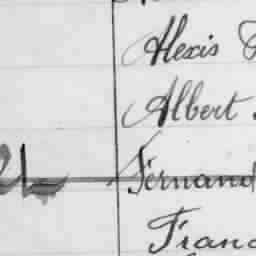 Alexis
Albert
Fernand
Franc